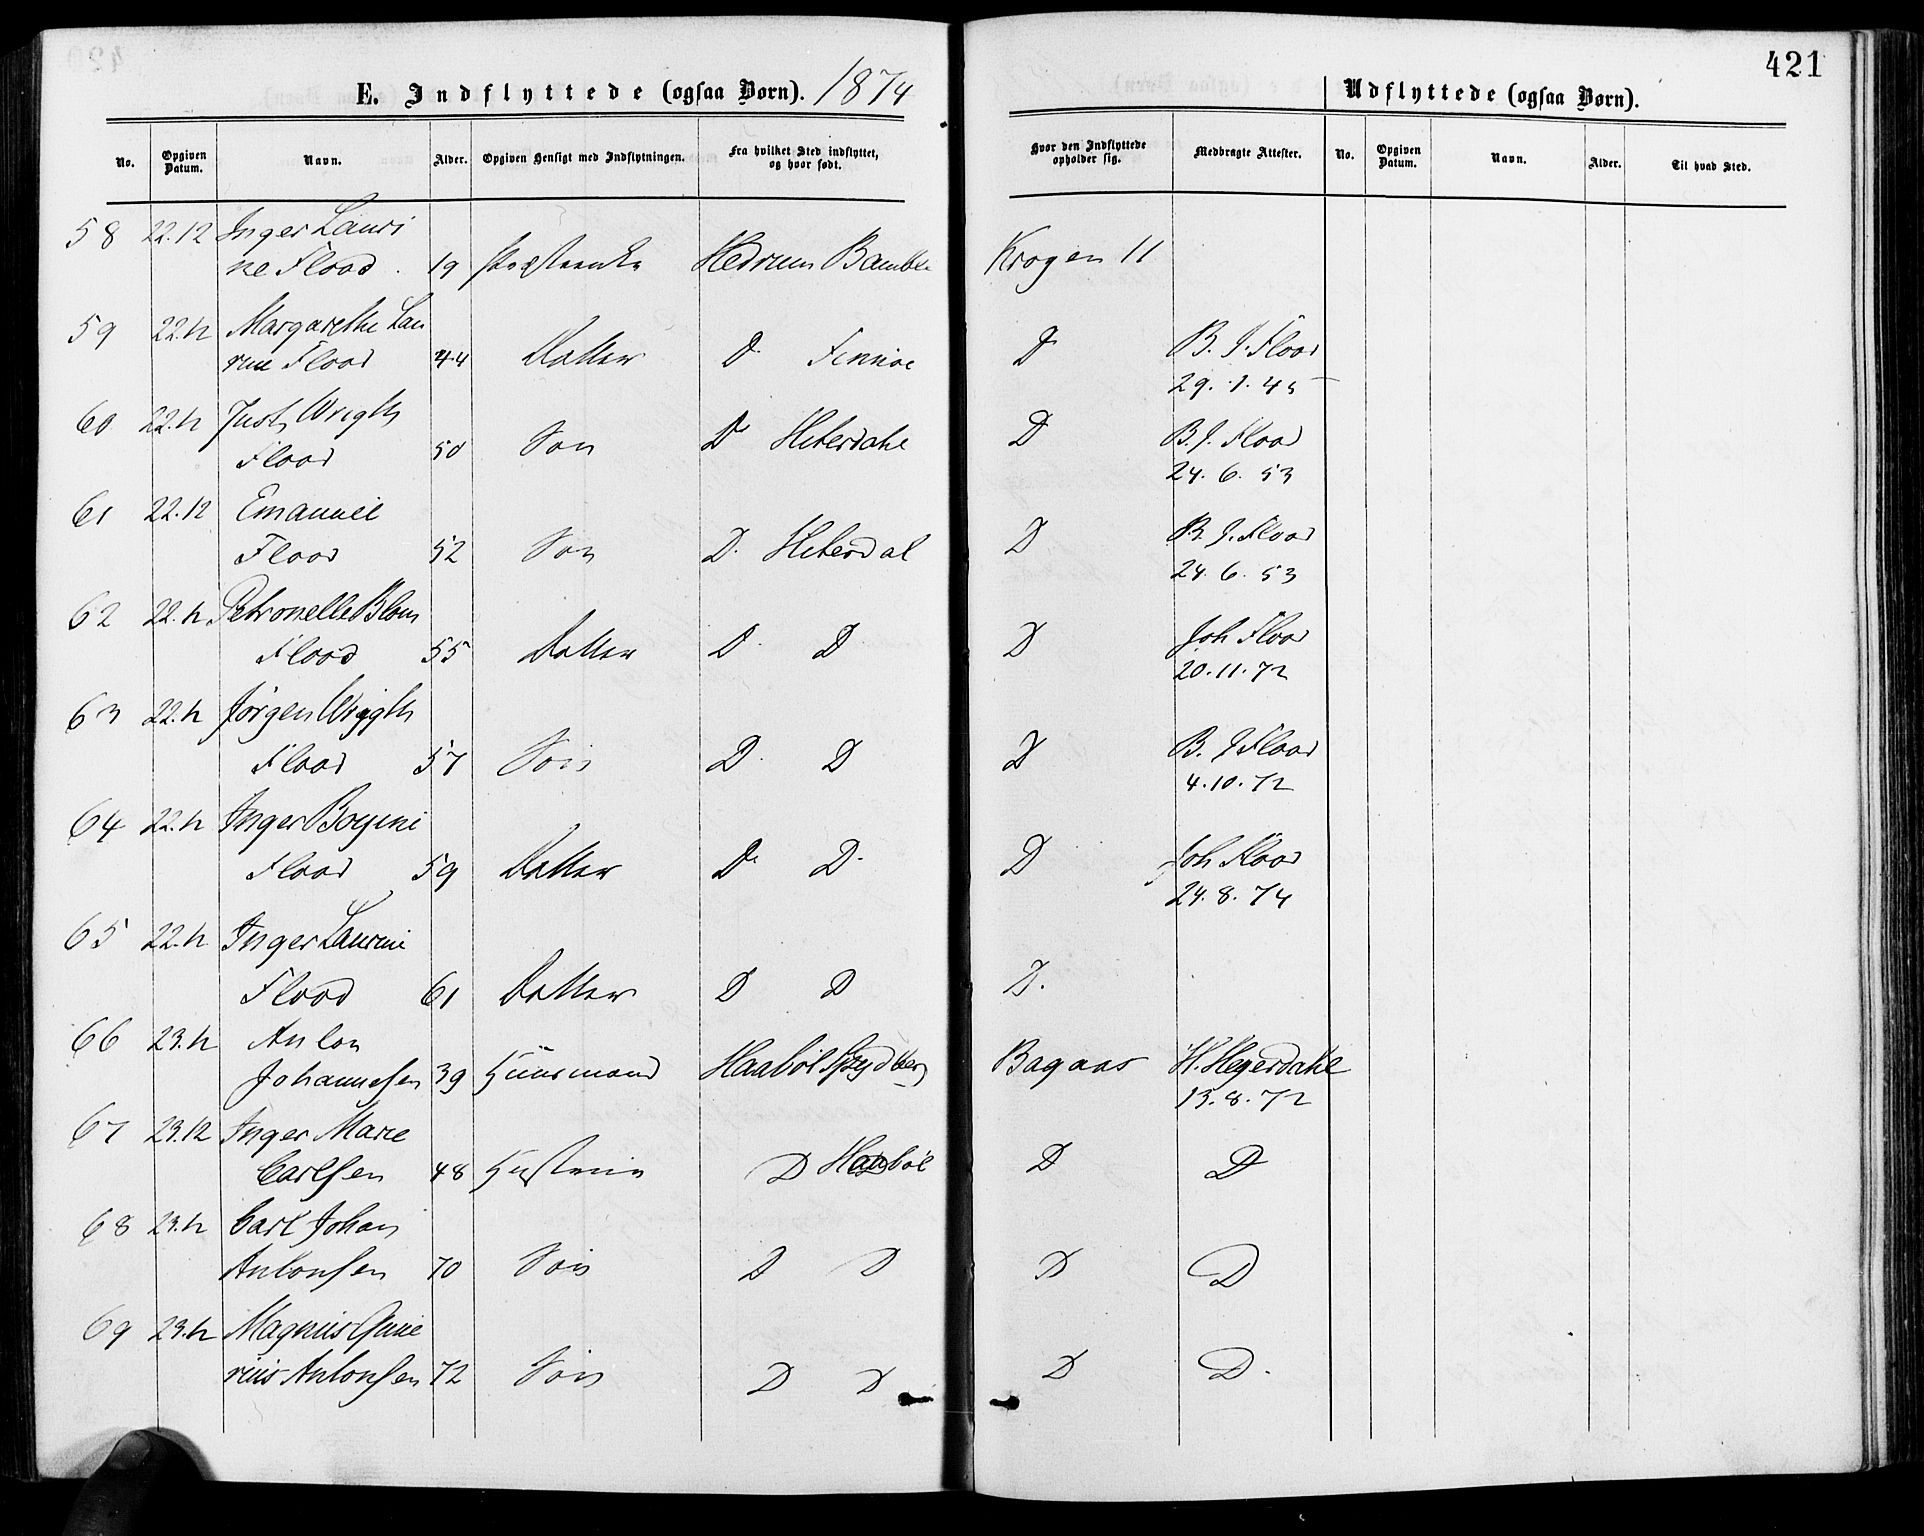 421
E. Indflyttede (ogsaa Børn). 1874
Udflyttede (ogsaa Børn).
No. Opgiven Datum. Navn. Alder. Opgiven Hensigt med Indflytningen. Fra hvilket Sted indflyttet, og hvor født. Hvor den Indflyttede opholder sig. Medbragte Attester. No. Opgiven Datum. Navn. Alder. Til hvad Sted.
58 22.12 Inger Lauri
ne Flood. 19 Præsteenke Hedrum Bamble Krogen 11
59 22.12 Margarethe Lau
rine Flood 44 Datter D. Finnøe D B. J. Flood
29. 1. 45
60 22.12 Just Wrigth
Flood 50 Søn D Hiterdahl D B. J. Flood
24. 6. 53
61 22.12 Emanuel
Flood 52 Søn D. Hiterdal D B. J. Flood
24. 6. 53
62 22.12 Petronelle Blom
Flood 55 Datter D. D D Joh Flood
20. 11. 72
63 22.12 Jørgen Wrigth
Flood 57 Søn D. D D B. J Flood
4. 10. 72
64 22.12 Inger
Flood 59 Datter D. D. D Joh Flood
24. 8. 74
65 22.12 Inger Laurine
Flood 61 Datter D D D.
66 23.12 Anton
Johannesen 39 Huusmand Haabøl Spydberg Bagaas H. Hegerdahl
13. 8. 72
67 23.12 Inger Marie
Carlsen 48 Hustrue D Haabøl D D
68 23.12 Carl Johan
Antonsen 70 Søn D D D D
69 23.12 Magnus
rius Antonsen 72 Søn D D D D.